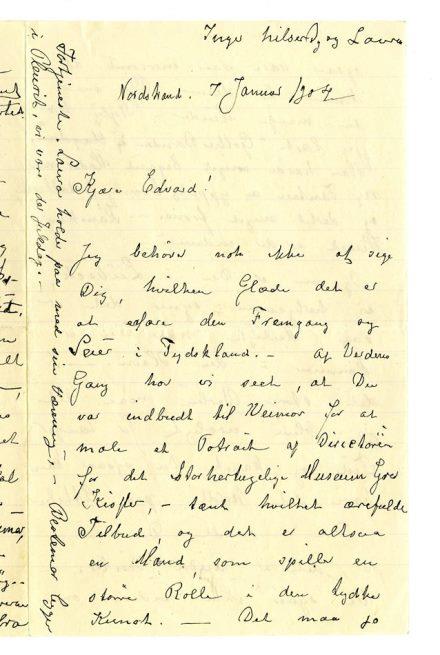 Inger hilser Dig og Laura
Nordstrand. 7 Januar 1904
Kjære Edvard!
Jeg behøver nok ikke at sige
Dig, hvilken Glæde det er
at erfare den Fremgang og
Seier i Tydskland. – Af Verdens
Gang har vi seet, at Du
var indbudt til Weimar for at
male et Poträt af Directören
for det Storhertugelige Museum Grev
Kessler, – tænk hvilket ærefulde
Tilbud, og det er altsaa
en Mand, som spiller en
större Rolle i den tydske
Kunst. — Det maa jo
Laura holder paa med sin
i , vi var da